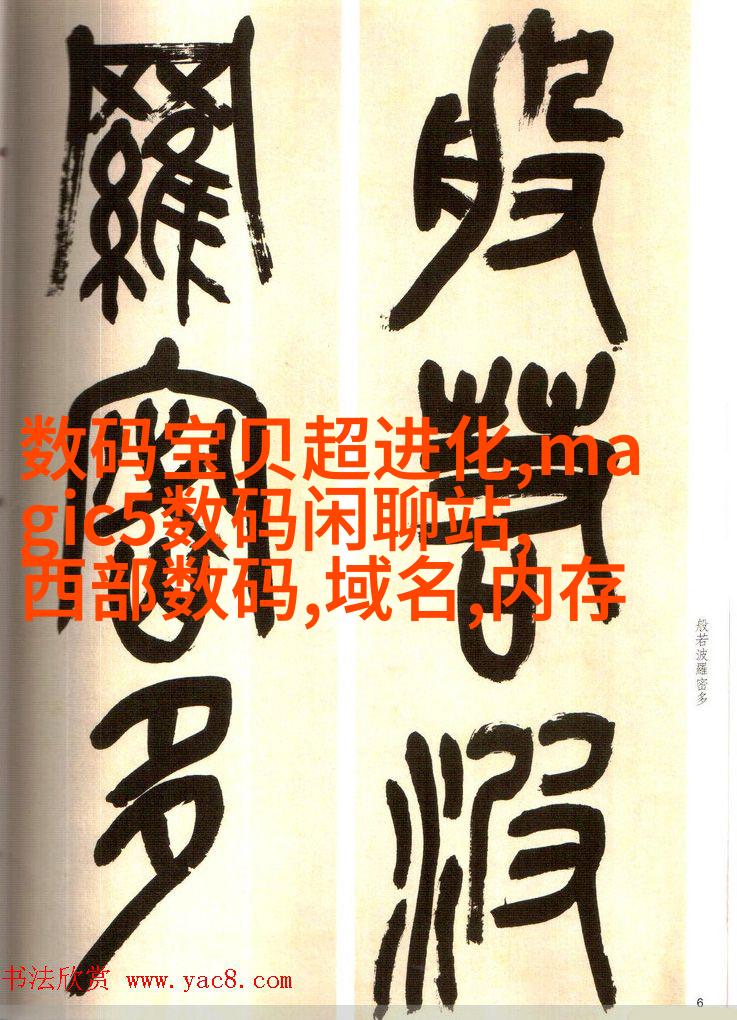 般若波
羅密多
数码宝贝超进化,ma
gic5数码闲聊站,
西部数码,域名,内存
般若波羅密多
书法欣赏 www.yac8.com
6